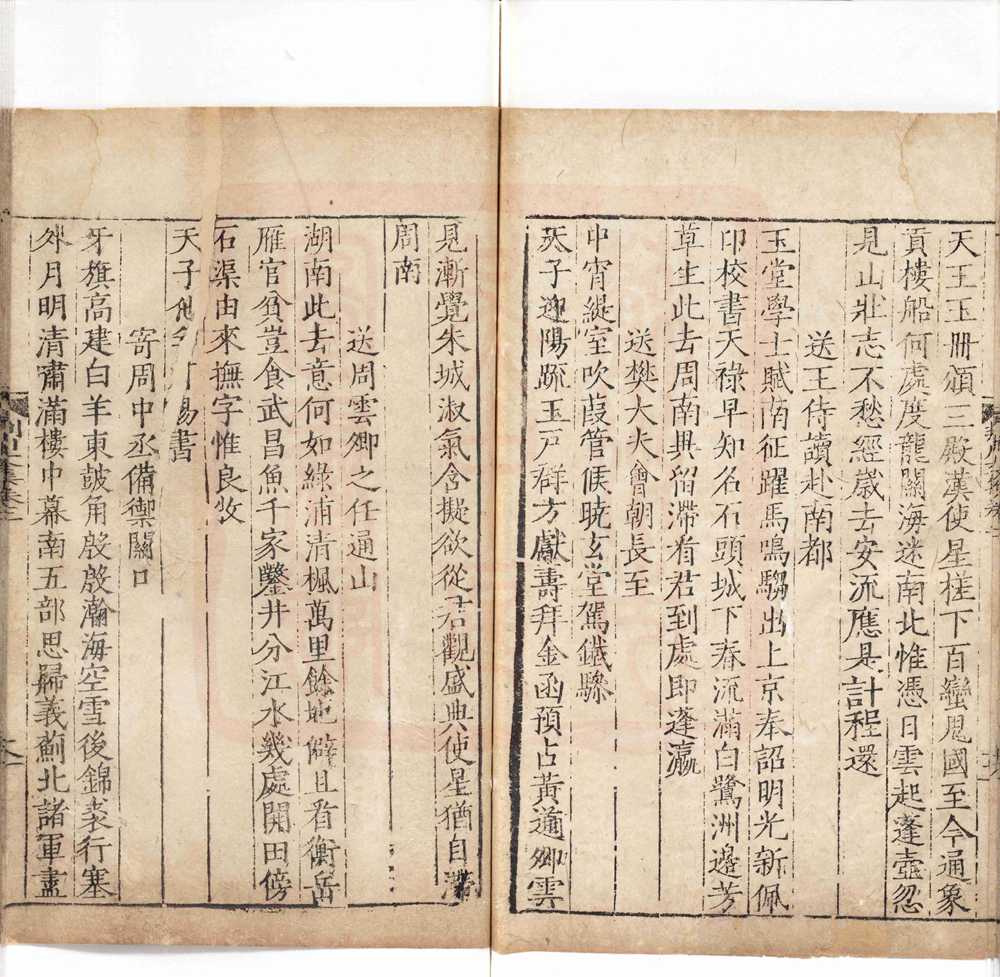 天王玉冊頒三殿漢使星槎下百蠻鬼國至今通象
貢樓船何處度龍關海迷南北惟憑日雲起蓬壺忽
見山壯志不愁經歲去安流應是計程還
送王侍讀赴南都
玉堂學士賦南征躍馬鳴騶出上京奉詔明光新佩
印校書天祿早知名石頭城下春流滿白鷺洲邊芳
草生此去周南興留滯看君到處即蓬瀛
送樊大夫會朝長至
中宵緹室吹葭管候曉玄堂駕鐵驂
天子迎陽䟽玉戶群方獻壽拜金函預占黃道卿雲
見漸覺朱城淑氣含擬欲從君觀盛典使星猶自滯
周南
送周雲卿之任通山
湖南此去意何如綠浦清楓萬里餘地僻且看衡岳
雁官貧豈食武昌魚千家鑿井分江水幾處開田傍
石渠由來撫字惟良牧
天子
書
寄周中丞備禦關口
牙旗高建白羊東皷角殷殷瀚海空雪後錦裘行塞
外月明清嘯滿樓中幕南五部思歸義薊北諸軍盡